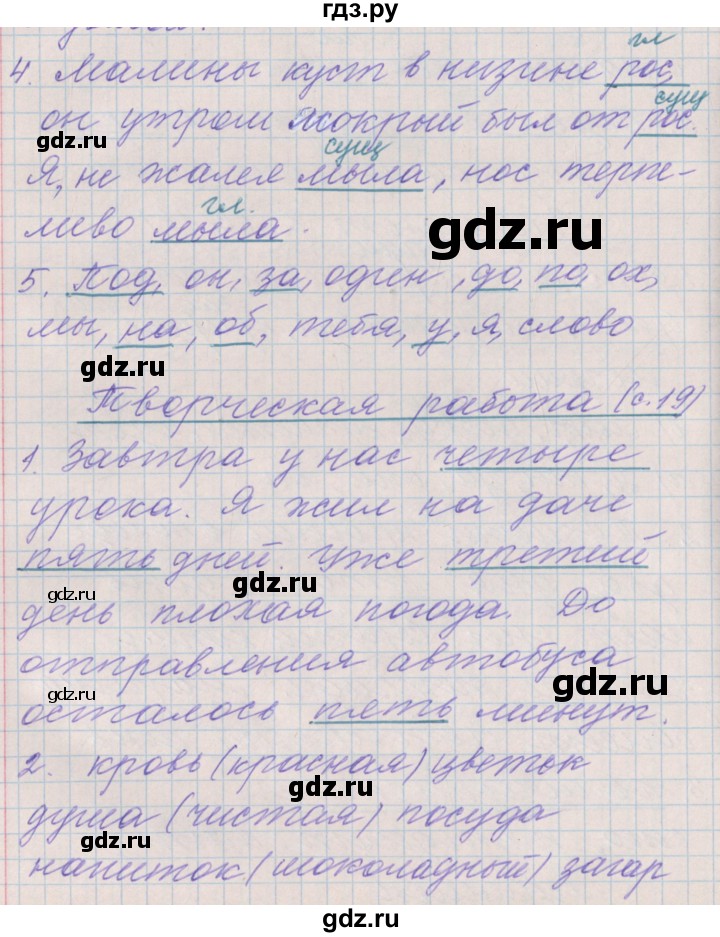 гдз.ру
гл
4. Малины куст в низине рос,
сущ
он утром мокрый был от рос.
gdz.ru
сущ
Я, не жалея мыла, нос терпе-
gdz.ru
гл.
ливо мыла.
gdz.ru
5. Под, он, за, один, до, по, ох,
мы, на, об, тебя, у, я, слово
gdz.ru
Творческая работа (с. 19)
gdz.ru
1. Завтра у нас четыре
урока. Я жил на даче
пять дней. Уже третий
gdz.ru
gdz.ru
день плохая погода. До
отправления автобуса
gdz.ru
gdz.ru
осталось пять минут.
2. кровь (красная) цветок
gdz.ru
душа (чистая) посуда
gdz.ru
gdz.ru
напиток (шоколадный) загар
gdz.ru
гдз.ру